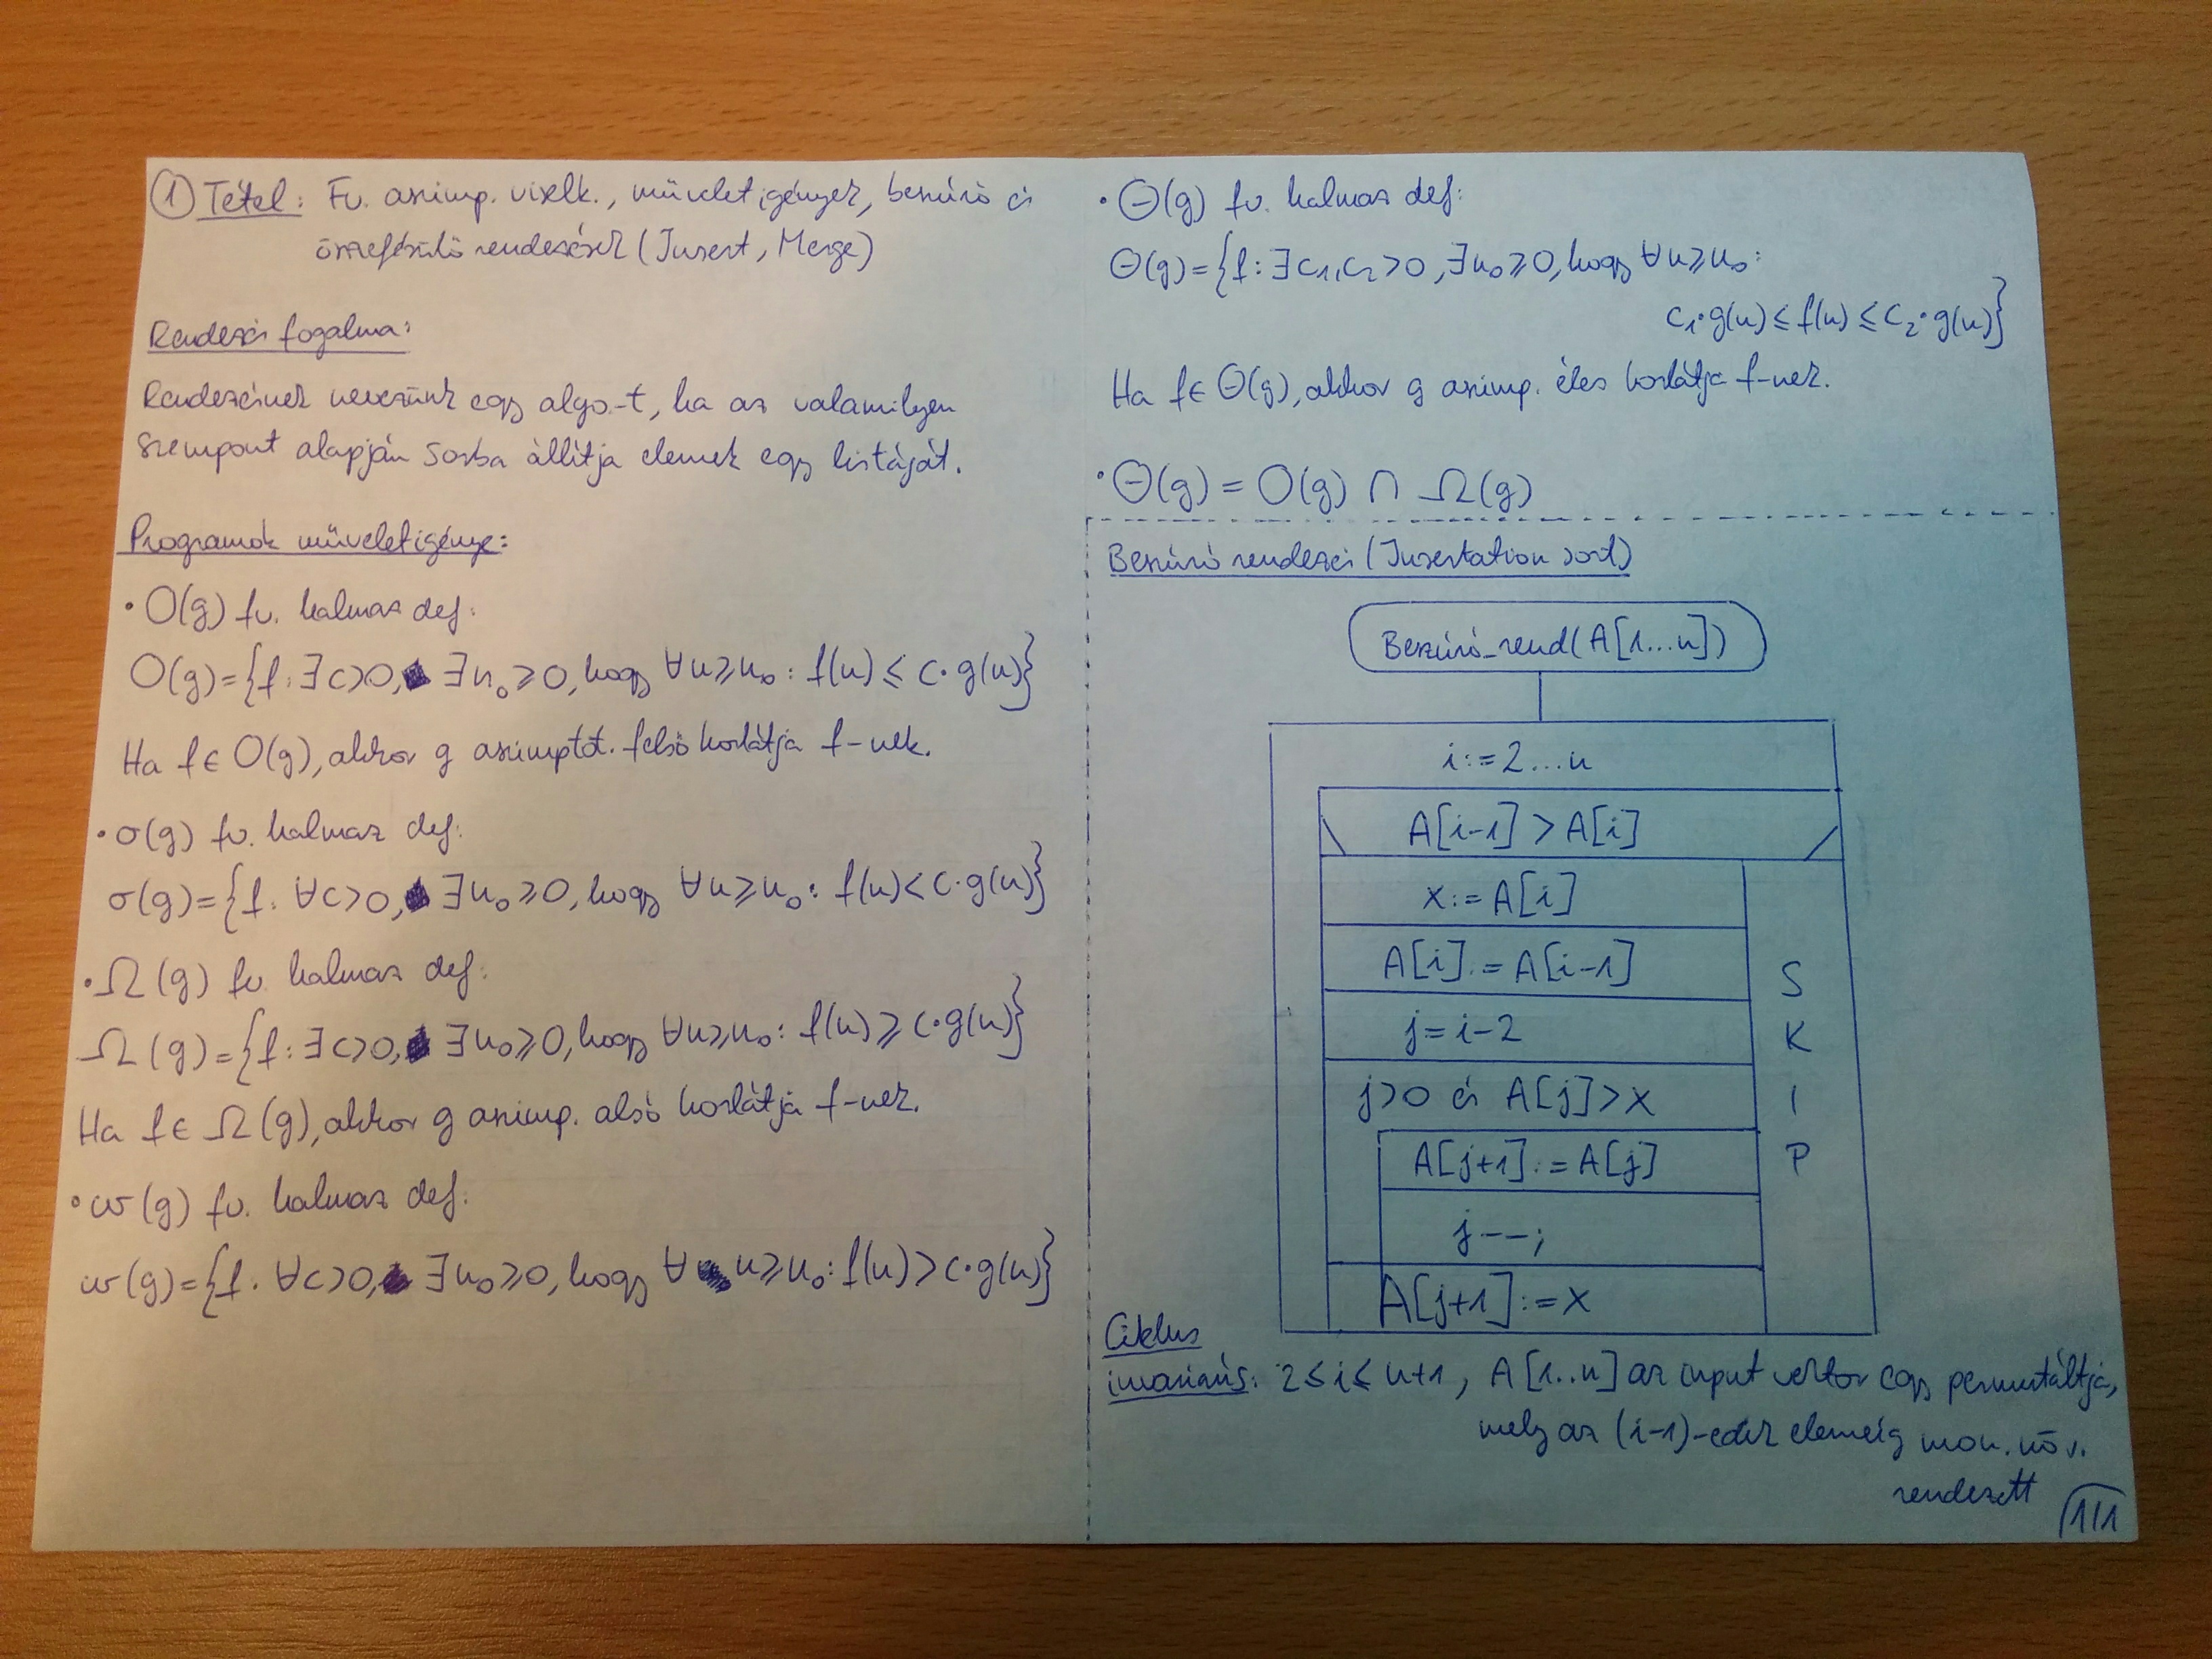 ① Tétel: Fv. aszimp. viselk., műveletigények, beszúró és
összefésülő rendezések (Insert, Merge)
Rendezés fogalma:
Rendezésnek nevezünk egy algo-t, ha az valamilyen
szempont alapján sorba állítja elemek egy listáját.
Programok műveletigénye:
• O(g) fv. halmaz def:
O(g)={f: ∃c>0, ∃n₀≥0, hogy ∀n≥n₀: f(n)≤c·g(n)}
Ha f∈O(g), akkor g aszimptot. felső korlátja f-nek.
• σ(g) fv. halmaz def:
σ(g)={f: ∀c>0, ∃n₀≥0, hogy ∀n≥n₀: f(n)<c·g(n)}
• Ω(g) fv. halmaz def:
Ω(g)={f: ∃c>0, ∃n₀≥0, hogy ∀n≥n₀: f(n)≥c·g(n)}
Ha f∈Ω(g), akkor g aszimp. alsó korlátja f-nek.
• ω(g) fv. halmaz def:
ω(g)={f: ∀c>0, ∃n₀≥0, hogy ∀n≥n₀: f(n)>c·g(n)}
• Θ(g) fv. halmaz def:
Θ(g)={f: ∃c₁,c₂>0, ∃n₀≥0, hogy ∀n≥n₀:
c₁·g(n)≤f(n)≤c₂·g(n)}
Ha f∈Θ(g), akkor g aszimp. éles korlátja f-nek.
• Θ(g)=O(g)∩Ω(g)
Beszúró rendezés (Insertation sort)
Beszúró_rend(A[1...n])
i:=2...n
A[i-1]>A[i]
x:=A[i]
A[i]:=A[i-1]
j=i-2
j>0 és A[j]>x
A[j+1]:=A[j]
j--;
A[j+1]:=x
S
K
I
P
Ciklus
invariáns: 2≤i≤n+1, A[1..n] az input vektor egy permutáltja,
mely az (i-1)-edik elemeig mon. növ.
rendezett
1/1